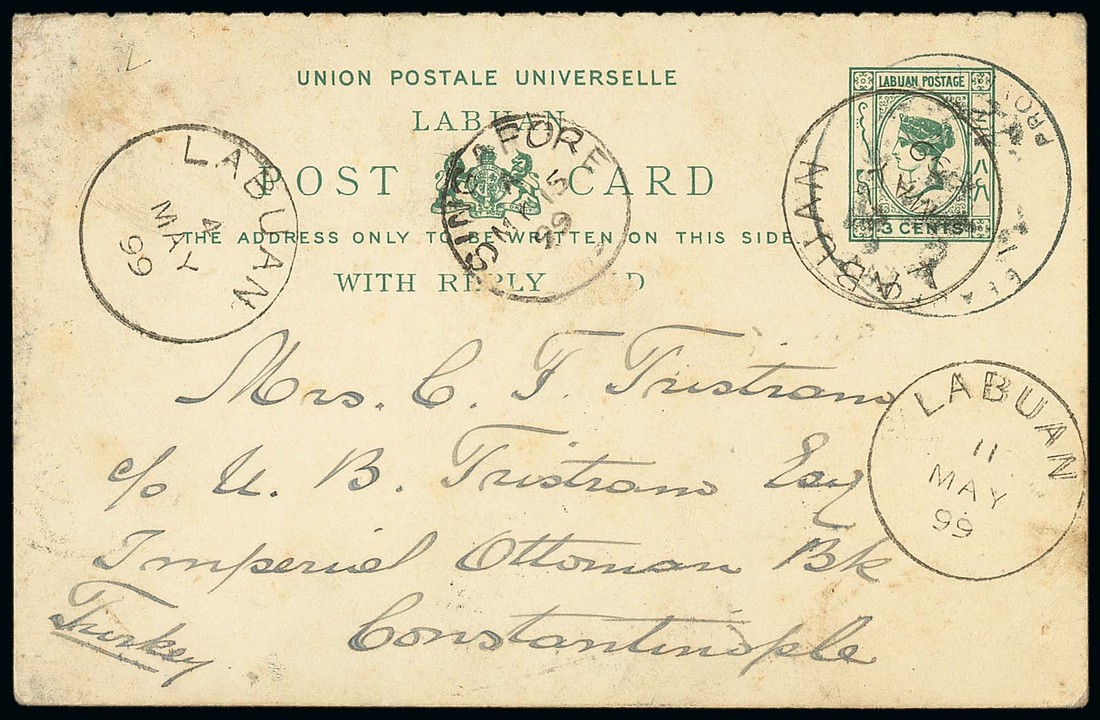 UNION POSTALE UNIVERSELLE
LABUAN
POST CARD
THE ADDRESS ONLY TO BE WRITTEN ON THIS SIDE
WITH REPLY
LABUAN POSTAGE
3 CENTS
LABUAN
4
MAY
99
SINGAPORE
MY 15
99
LABUAN
LABUAN
11
MAY
99
Mrs. C. F. Tristram
c/o U. B. Tristram Esq
Imperial Ottoman Bk
Constantinople
Turkey